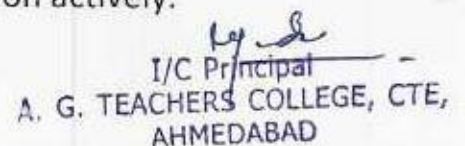 on actively.
I/C Principal
A. G. TEACHERS COLLEGE, CTE,
AHMEDABAD